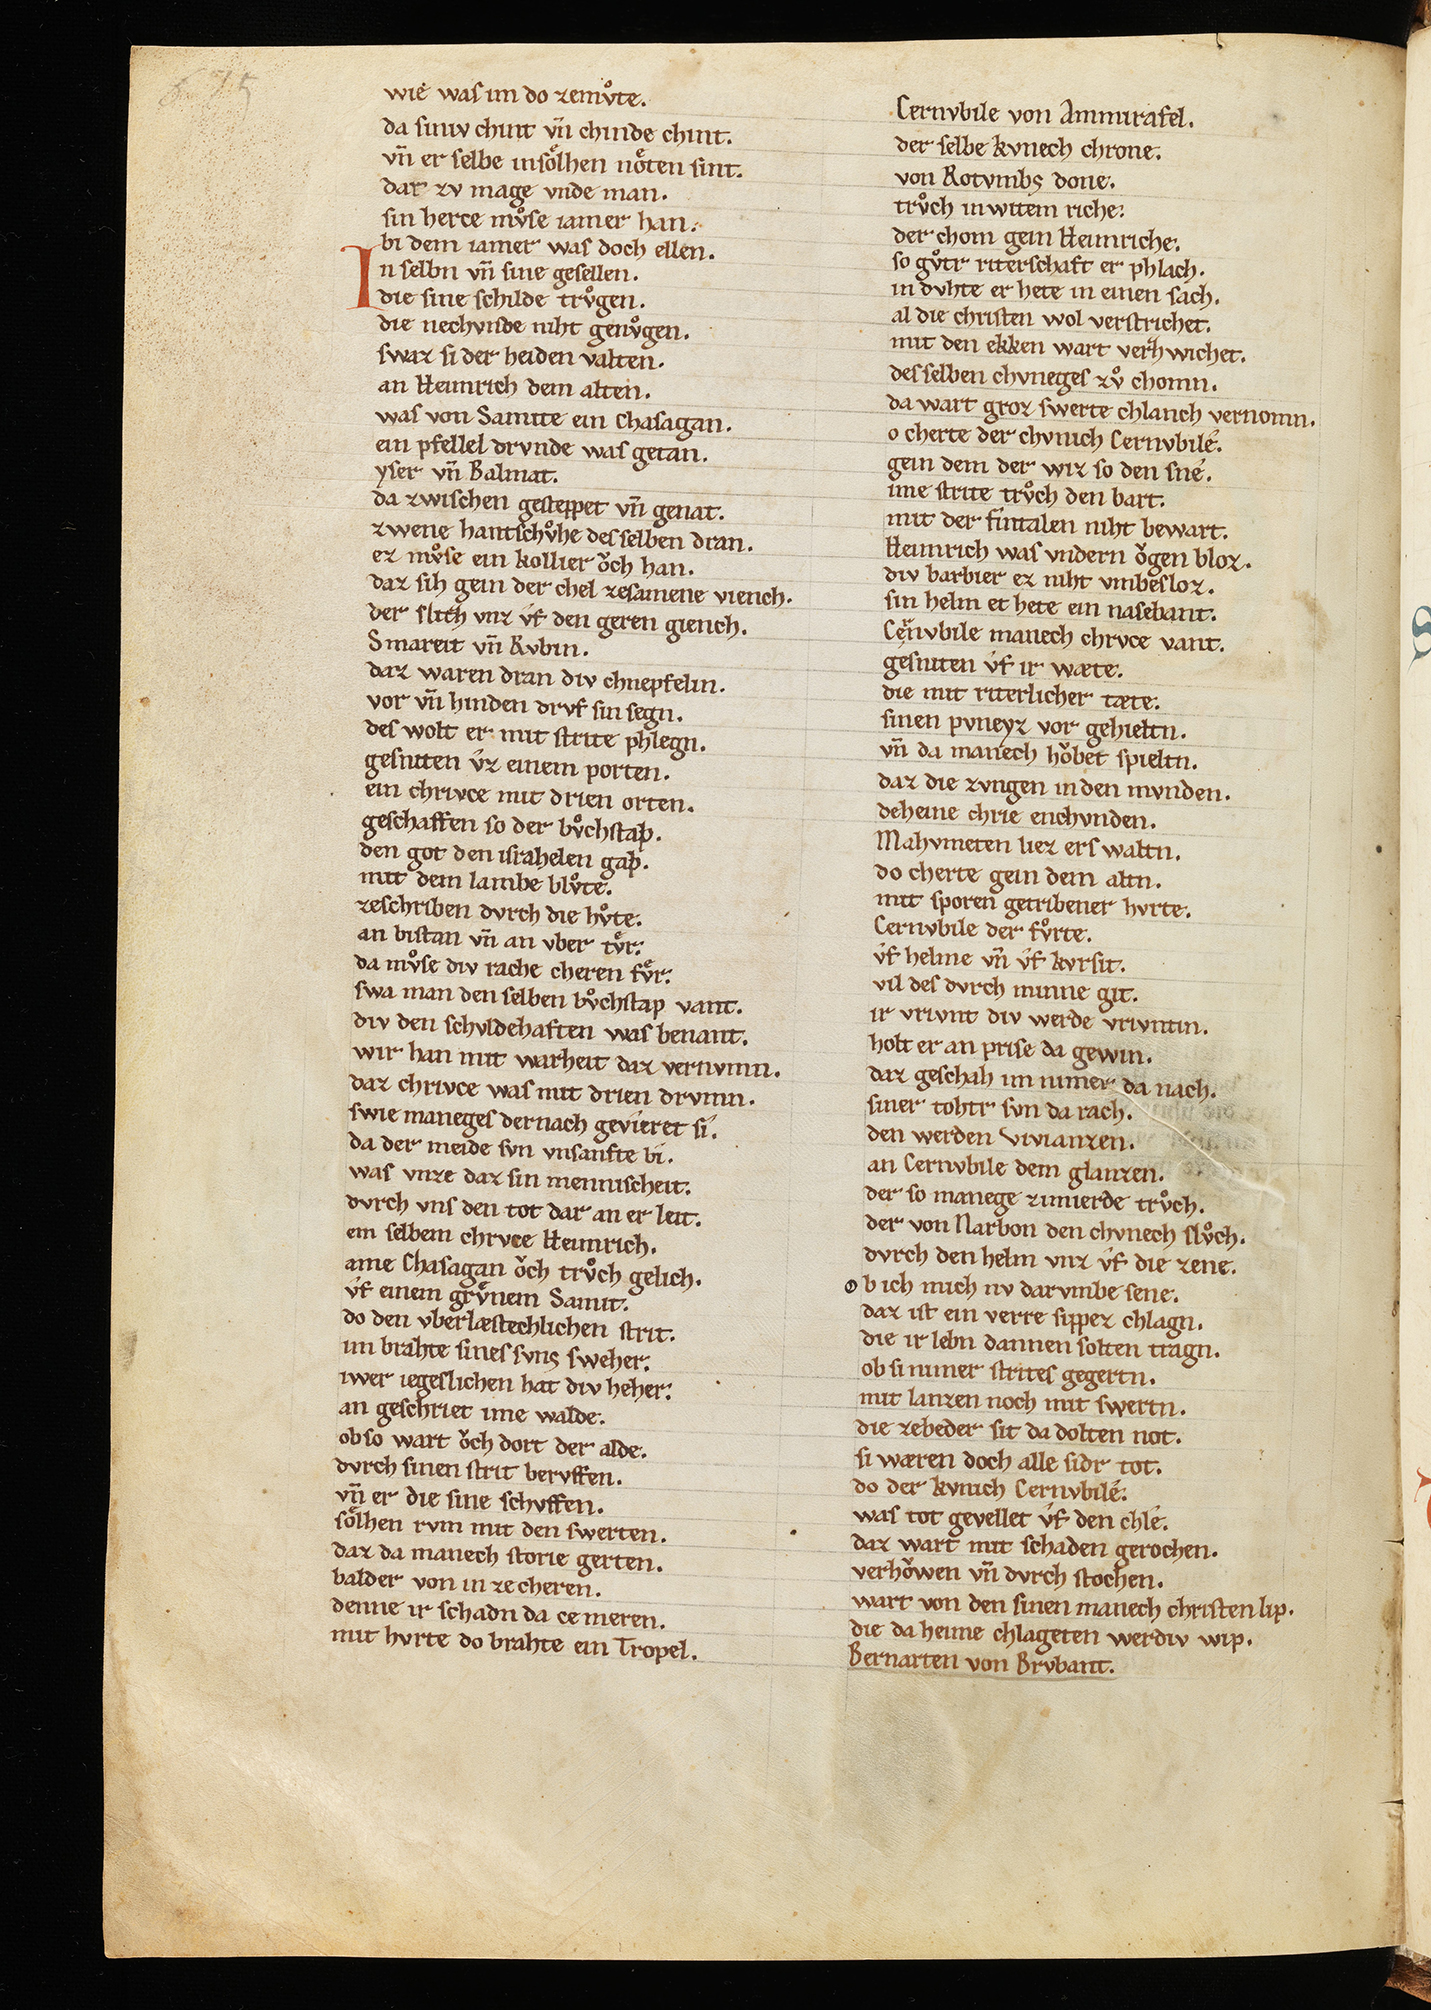 675
wie waſ im do zemvͦte.
da ſiniv chint vn̄ chinde chint.
vn̄ er ſelbe inſoͤlhen noͤten ſint.
dar zv mage vnde man.
ſin herce mvͦſe iamer han.
bi dem iamer was doch ellen.
In ſelbn vn̄ ſine geſellen.
die ſine ſchilde trvͦgen.
die nechvnde niht genvͦgen.
ſwaz ſi der heiden valten.
an Heimrich dem alten.
was von Samite ein Chaſagan.
ein pfellel drvnde was getan.
yſer vn̄ Balmat.
da zwiſchen geſteppet vn̄ genat.
zwene hantſchvͦhe deſ ſelben dran.
ez mvͦſe ein kollier oͮch han.
daz ſih gein der chel zeſamene viench.
der ſlich vnz vf den geren giench.
Smareit vn̄ Rvbin.
daz waren dran div chnepfelin.
vor vn̄ hinden drvf ſin ſegn.
des wolt er mit ſtrite phlegn.
geſniten vz einem porten.
ein chrivce mit drien orten.
geſchaffen ſo der bvͦchſtap.
den got den iſrahelen gap.
mit dem lambe blvͦte.
zeſchriben dvrch die hvͦte.
an biſtan vn̄ an vber tvͤr.
da mvͦſe div rache cheren fvͤr.
ſwa man den ſelben bvͦchſtap vant.
div den ſchvldehaften was benant.
wir han mit warheit daz vernvmn.
daz chrivce was mit drien drvmn.
ſwie maneges dernach gevieret ſi.
da der meide ſvn vnſanfte bi.
was vnze daz ſin menniſcheit.
dvrch vns den tot dar an er leit.
ein ſelbem chrvce Heimrich.
ame Chaſagan oͮch trvͦch gelich.
vf einem grvͤnem Samit.
do den vberlæſtechlichen ſtrit.
im brahte ſines ſvns ſweher.
iwer iegeſlichen hat div heher.
an geſchriet ime walde.
ob ſo wart oͮch dort der alde.
dvrch ſinen ſtrit bervffen.
vn̄ er die ſine ſchvffen.
ſoͤlhen rvm mit den ſwerten.
daz da manech ſtorie gerten.
balder von in ze cheren.
denne ir ſchadn da ce meren.
mit hvrte do brahte ein Tropel.
Cernvbile von Ammirafel.
der ſelbe kvnech chrone.
von Rotvmbs done.
trvͦch in witem riche.
der chom gein Heimriche.
ſo gvͦtr riterſchaft er phlach.
in dvhte er hete in einen ſach.
al die chriſten wol verſtrichet.
mit den ekken wart verhwichet.
des ſelben chvneges zvͦ chomn.
da wart groz ſwerte chlanch vernomn.
o cherte der chvnich Cernvbile.
gein dem der wiz ſo den ſne.
ime ſtrite trvͦch den bart.
mit der fintalen niht bewart.
Heimrich was vndern oͮgen bloz.
div barbier ez niht vmbeſloz.
ſin helm et hete ein naſebant.
Cernvbile manech chrvce vant.
geſniten vf ir wæte.
die mit riterlicher tæte.
ſinen pvneyz vor gehieltn.
vn̄ da manech hoͮbet ſpieltn.
daz die zvngen in den mvnden.
deheine chrie enchvnden.
Mahvmeten liez ers waltn.
do cherte gein dem altn.
mit ſporen getribener hvrte.
Cernvbile der fvͦrte.
vf helme vn̄ vf kvrſit.
vil des dvrch minne git.
ir vrivnt div werde vrivntin.
holt er an priſe da gewin.
daz geſchah im nimer da nach.
ſiner tohtr ſvn da rach.
den werden Vivianzen.
an Cernvbile dem glanzen.
der ſo manege zimierde trvͦch.
der von Narbon den chvnech ſlvͦch.
dvrch den helm vnz vf die zene.
ob ich mich nv darvmbe ſene.
daz iſt ein verre ſippez chlagn.
die ir lebn dannen ſolten tragn.
ob ſi nimer ſtrites gegertn.
mit lanzen noch mit ſwertn.
die zebeder ſit da dolten not.
ſi wæren doch alle ſidr tot.
do der kvnich Cernvbile.
was tot gevellet vf den chle.
daz wart mit ſchaden gerochen.
verhoͮwen vn̄ dvrch ſtochen.
wart von den ſinen manech chriſten lip.
die da heime chlageten werdiv wip.
Bernarten von Brvbant.